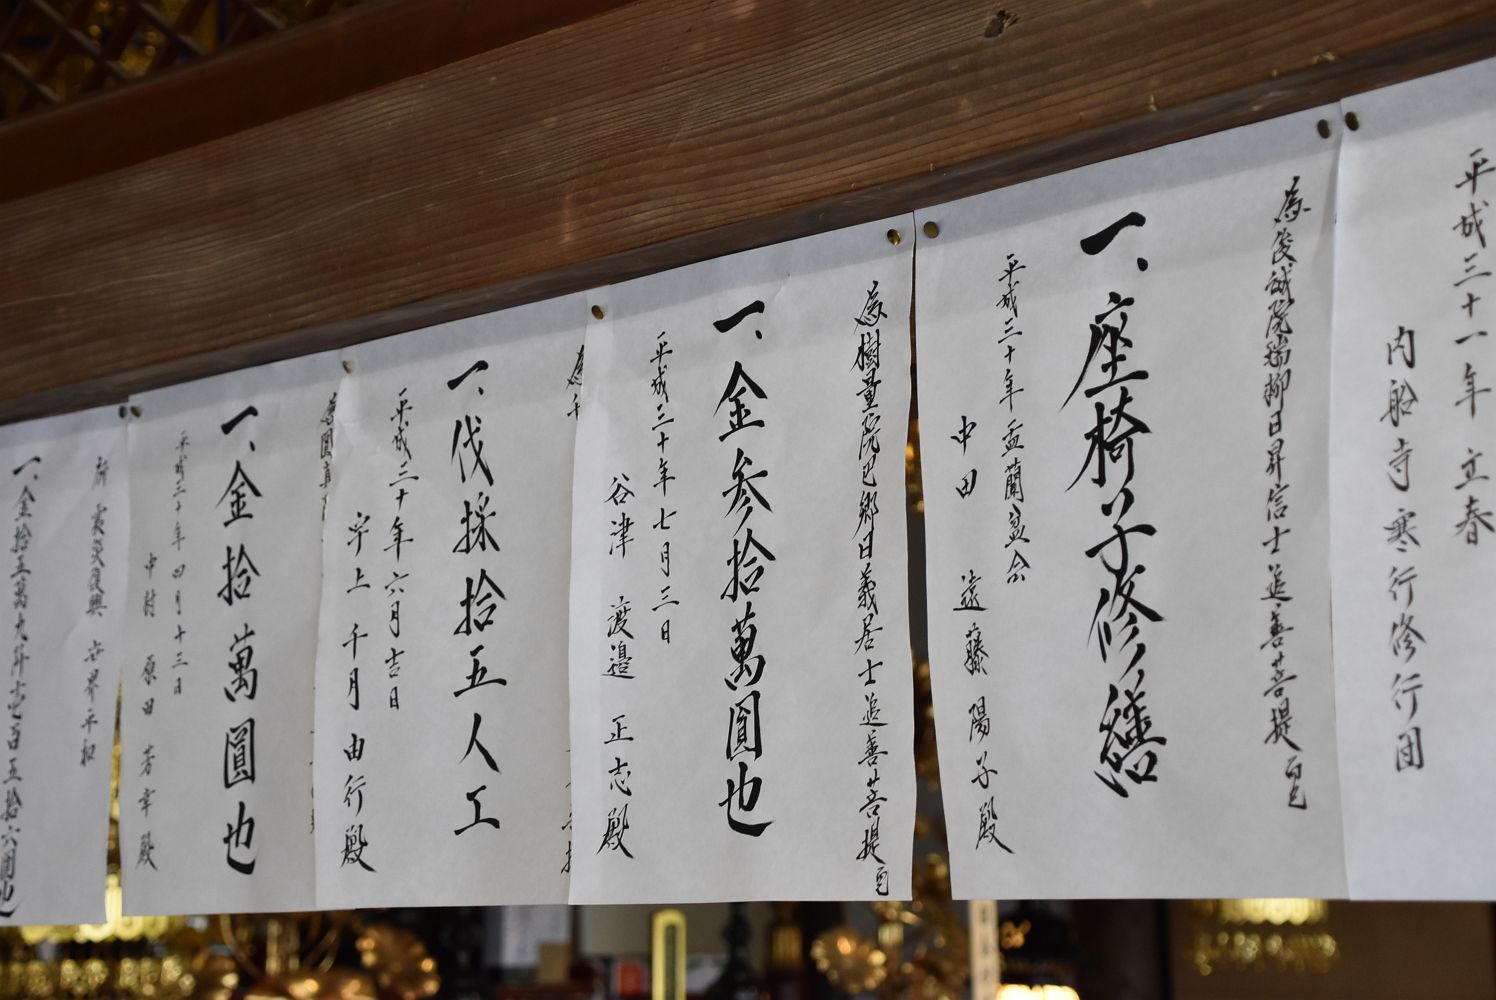 平成三十一年 立春
内船寺 寒行修行団
為俊誠院瑞柳日昇信士追善菩提
一、座椅子修繕
平成三十年 盂蘭盆会
中田 遠藤陽子殿
為樹量院巴郷日義居士追善菩提
一、金参拾萬圓也
平成三十年七月三日
谷津 渡邉 正志殿
為千
一、伐採拾五人工
平成三十年六月吉日
宇上 千月 由行殿
一、金拾萬圓也
平成三十年四月十三日
中村 原田 芳幸殿
祈 震災復興 世界平和
一、金拾五萬九阡壱百五拾六圓也